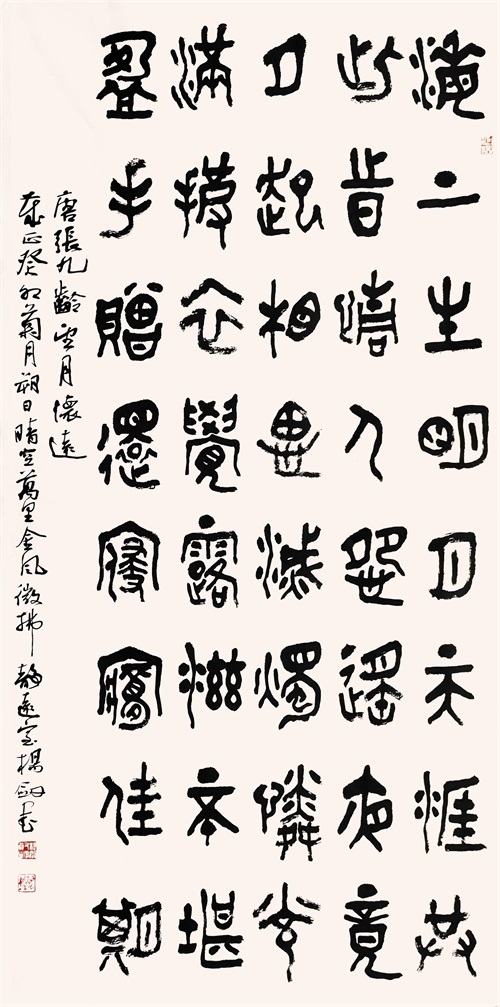 海上生明月天涯共
此時情人怨遙夜竟
夕起相思滅燭憐光
滿披衣覺露滋不堪
盈手贈還寢夢佳期
唐張九齡望月懷遠
歲在癸卯菊月朔日晴空萬里金風微拂靜遠室楊書